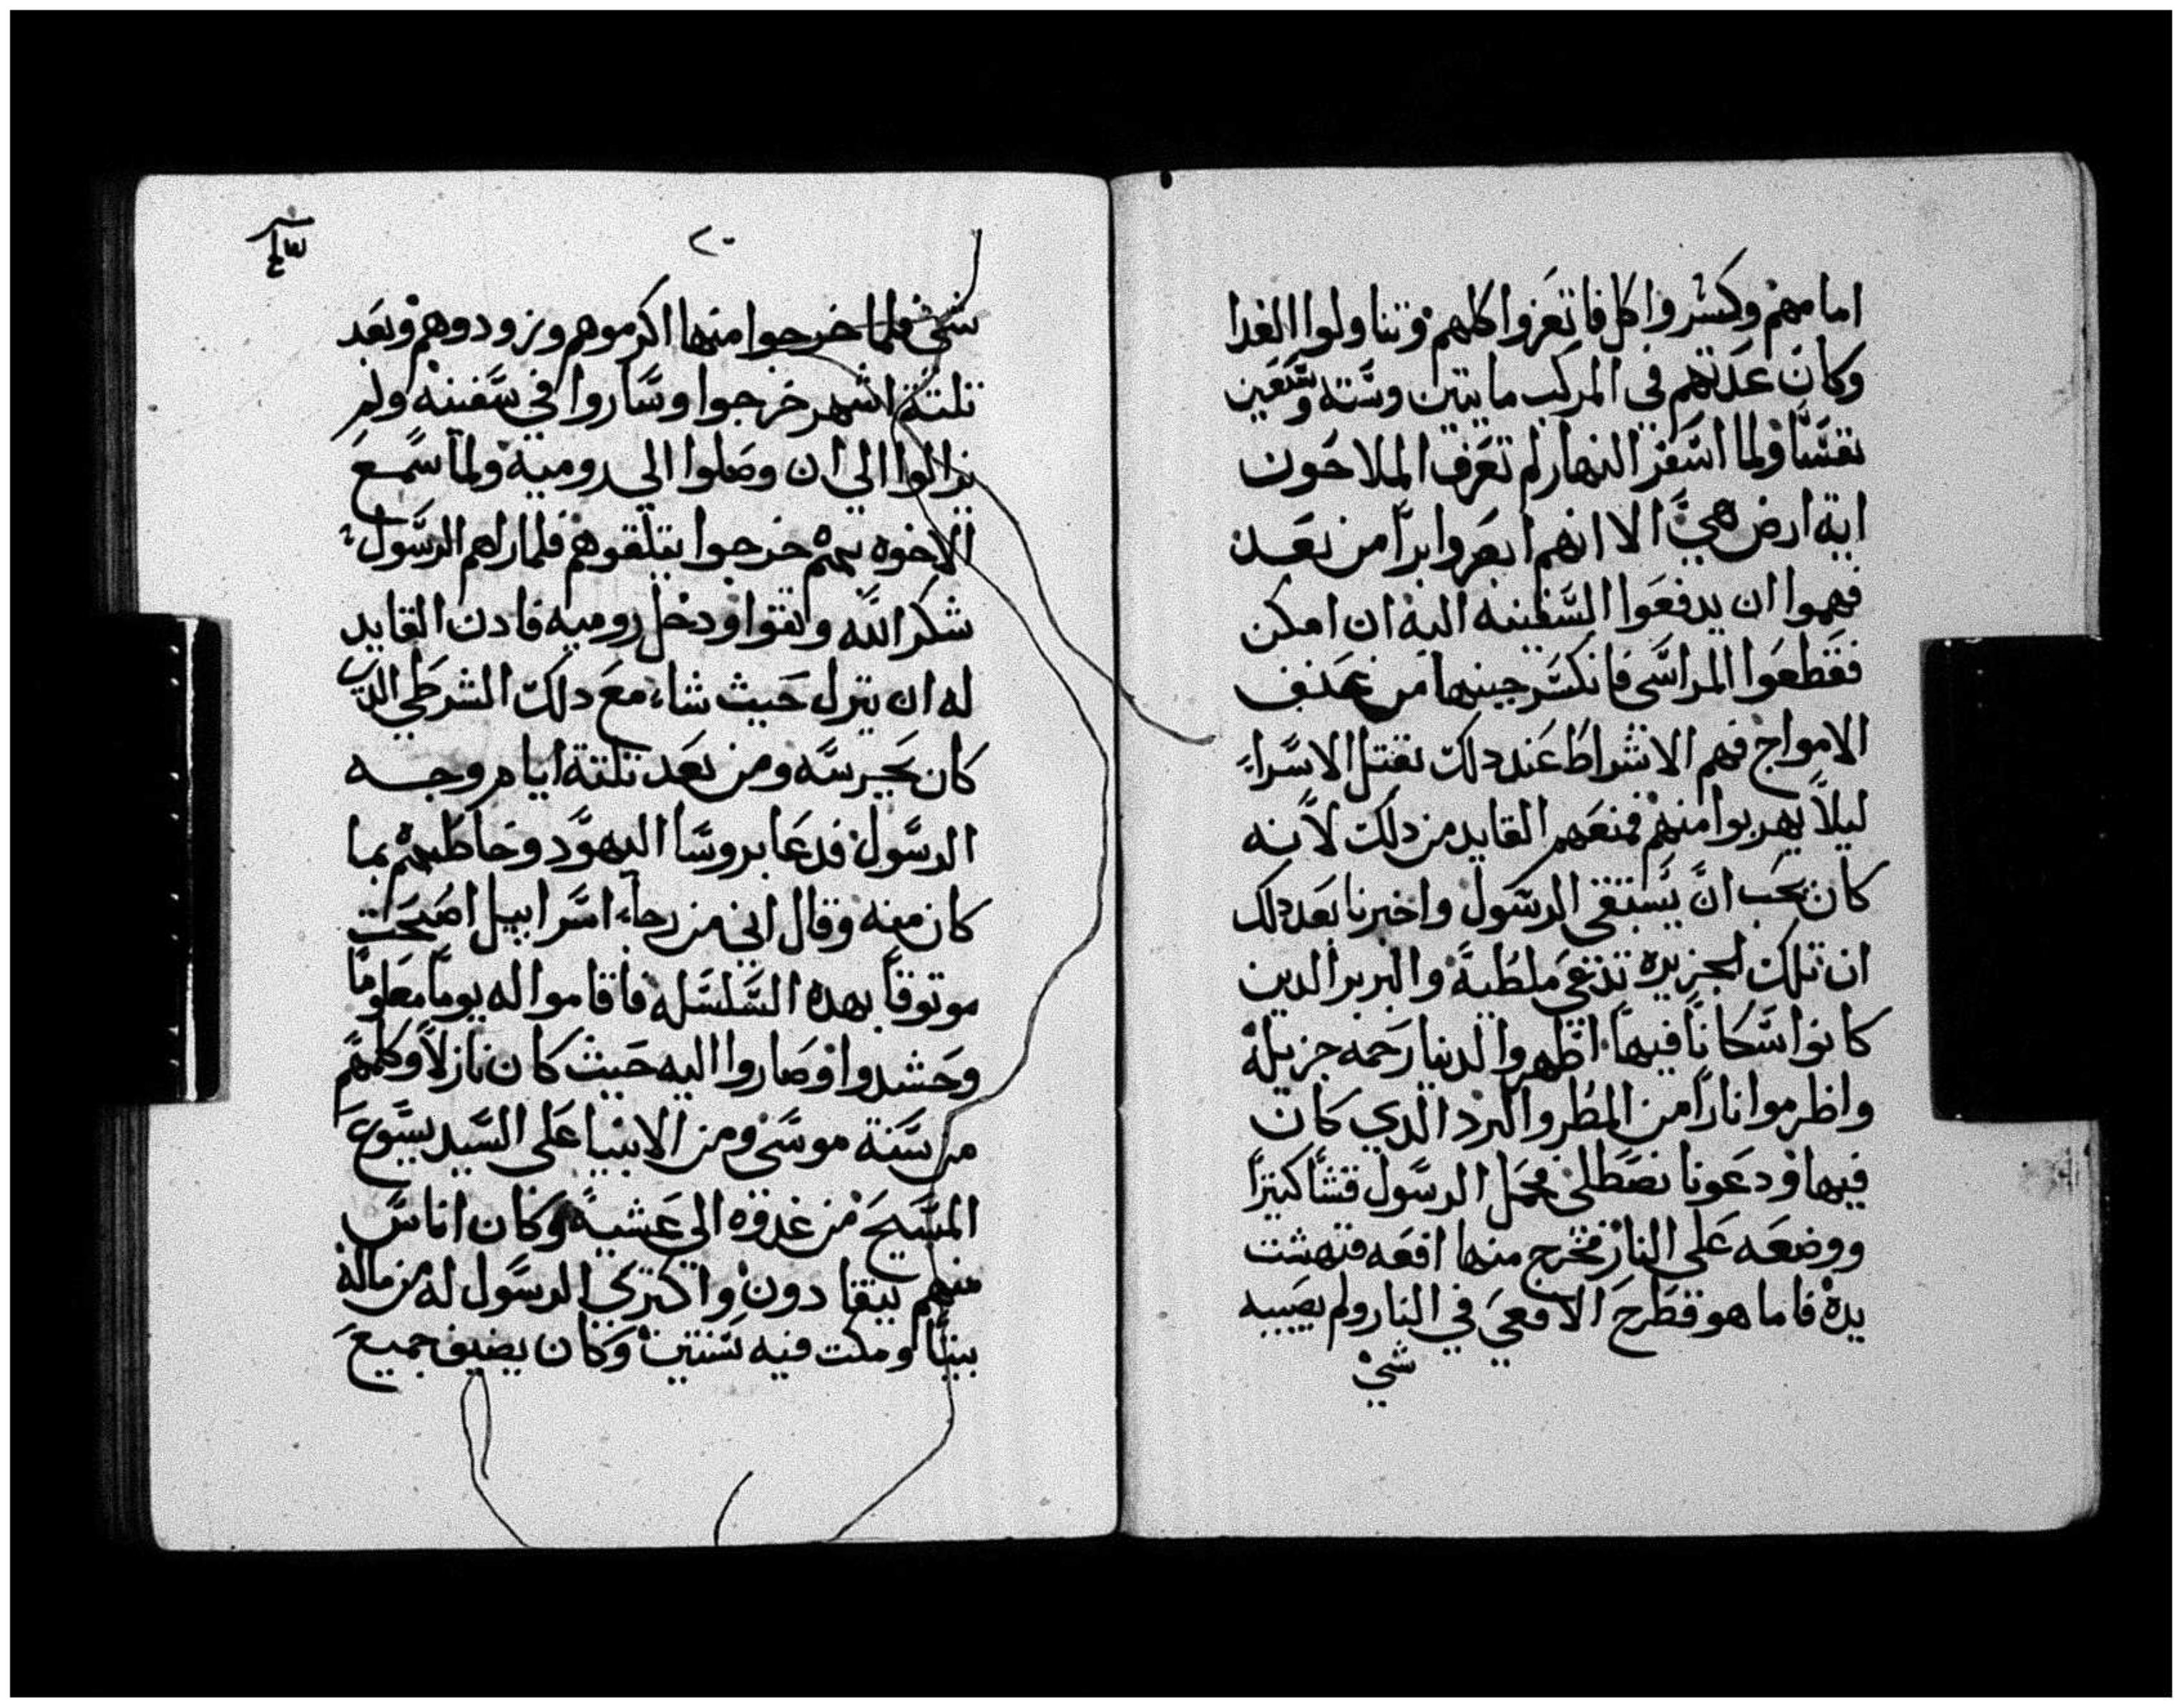 امامهم وكسر واكل فاتعزوا كلهم وتناولوا الغدا
وكان عدتهم في المركب مايتين وستة وسبعين
نفسًا ولما اسفر النهار لم تعرف الملاحون
اية ارض هي الا انهم ابصروا برًا من بعد
فهموا ان يدفعوا السفينه اليه ان امكن
فقطعوا المراسي فانكسر جنبها من عنف
الامواج فهم الاشراط عند دلك بقتل الاسراء
ليلًا يهربوا منهم فمنعهم القايد من دلك لانه
كان يحب ان يستبقي الرسول واخبرنا بعد دلك
ان تلك الجزيره تدعي ملطية والبربر الدين
كانوا سكانًا فيها اظهروا لدينا رحمه جزيلة
واظرموا نارًا من المطر والبرد الدي كان
فيها ودعونا نصطلي فحمل الرسول قشًا كثيرًا
ووضعه علي النار فخرج منها افعه فنهشت
يده فاما هو فطرح الافعي في النار ولم يصيبه
شي
٢٠
شي فلما خرجوا منها اكرموهم وزودوهم وبعد
تلتة اشهر خرجوا وساروا في سفينه ولم
يزالوا الي ان وصلوا الي رومية ولما سمع
الاخوه بهم خرجوا يتلقوهم فلما راهم الرسول
شكر الله واتقوا ودخل روميه فادن القايد
له ان ينزل حيث شاء مع دلك الشرطي الدي
كان يحرسه ومن بعد تلتة ايام وجه
الرسول فدعا بروسا اليهود وخاطبهم بما
كان منه وقال اني من رجاء اسراييل اصبحت
موتوقًا بهده السلسله فاقاموا له يومًا معلومًا
وحشدوا وصاروا اليه حيث كان نازلًا وكلمهم
من سنة موسي ومن الانبيا علي السيد يسوع
المسيح من غدوه الي عشية وكان اناس
منهم ينقادون واكتري الرسول له من ماله
بيتًا ومكت فيه سنتين وكان يضيف جميع